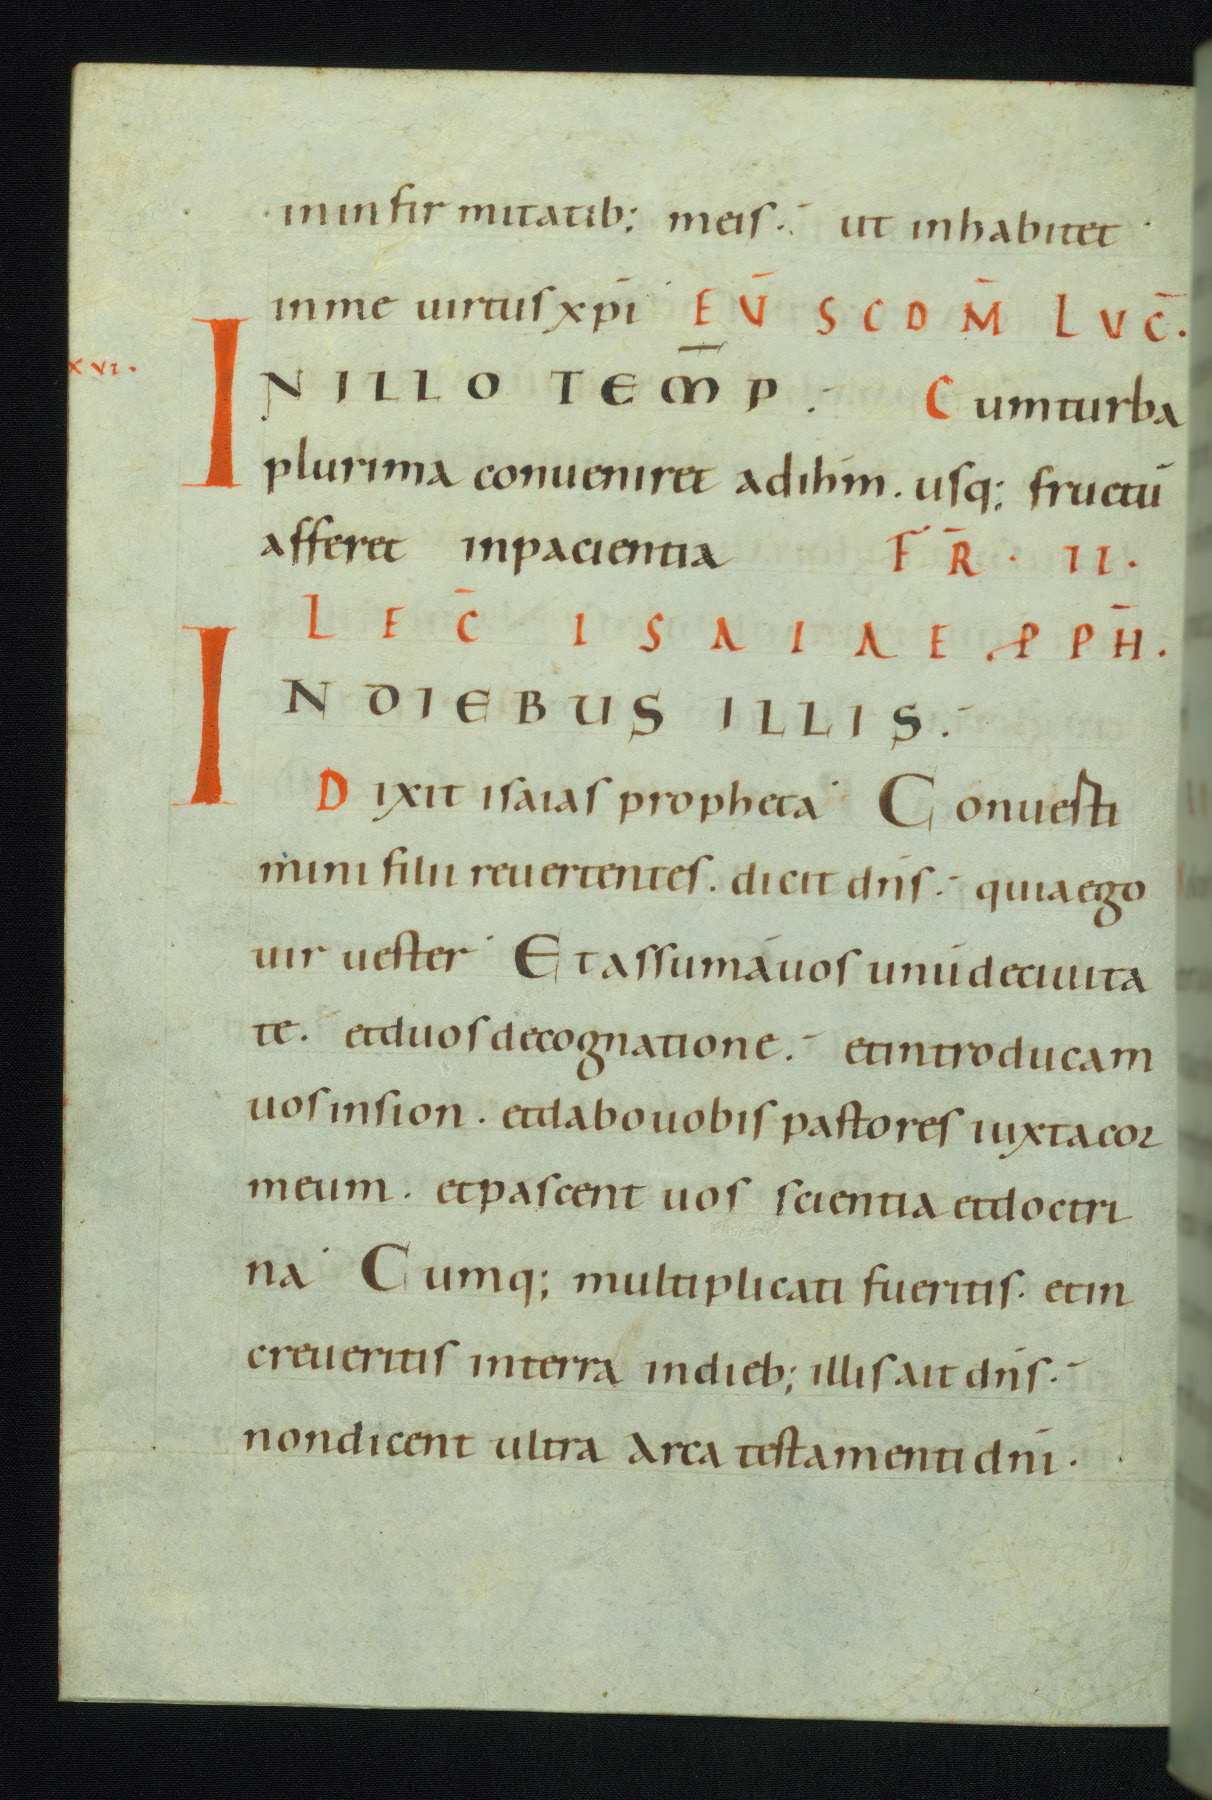 in infirmitatib; meis. ut inhabitet
inme uirtus xp̄i EV̄ SCDM̄ LVC̄.
XVI.
IN ILLO TEM̄P. Cumturba
plurima conueniret adih̄m. usq; fructū
afferet inpacientia FR̄. II.
LEC̄ ISAIAE PPH̄.
IN DIEBUS ILLIS.
Dixit isaias propheta Conuesti
mini filii reuertentes. dicit dn̄s. quiaego
uir uester Et assumāuos unūdeciuita
te. etduosdecognatione. etintroducam
uosinsion. etdabouobis pastores iuxtacor
meum. etpascent uos scientia etdoctri
na Cumq; multiplicati fueritis. etin
creueritis interra indieb; illisait dn̄s.
nondicent ultra Arca testamenti dn̄i.